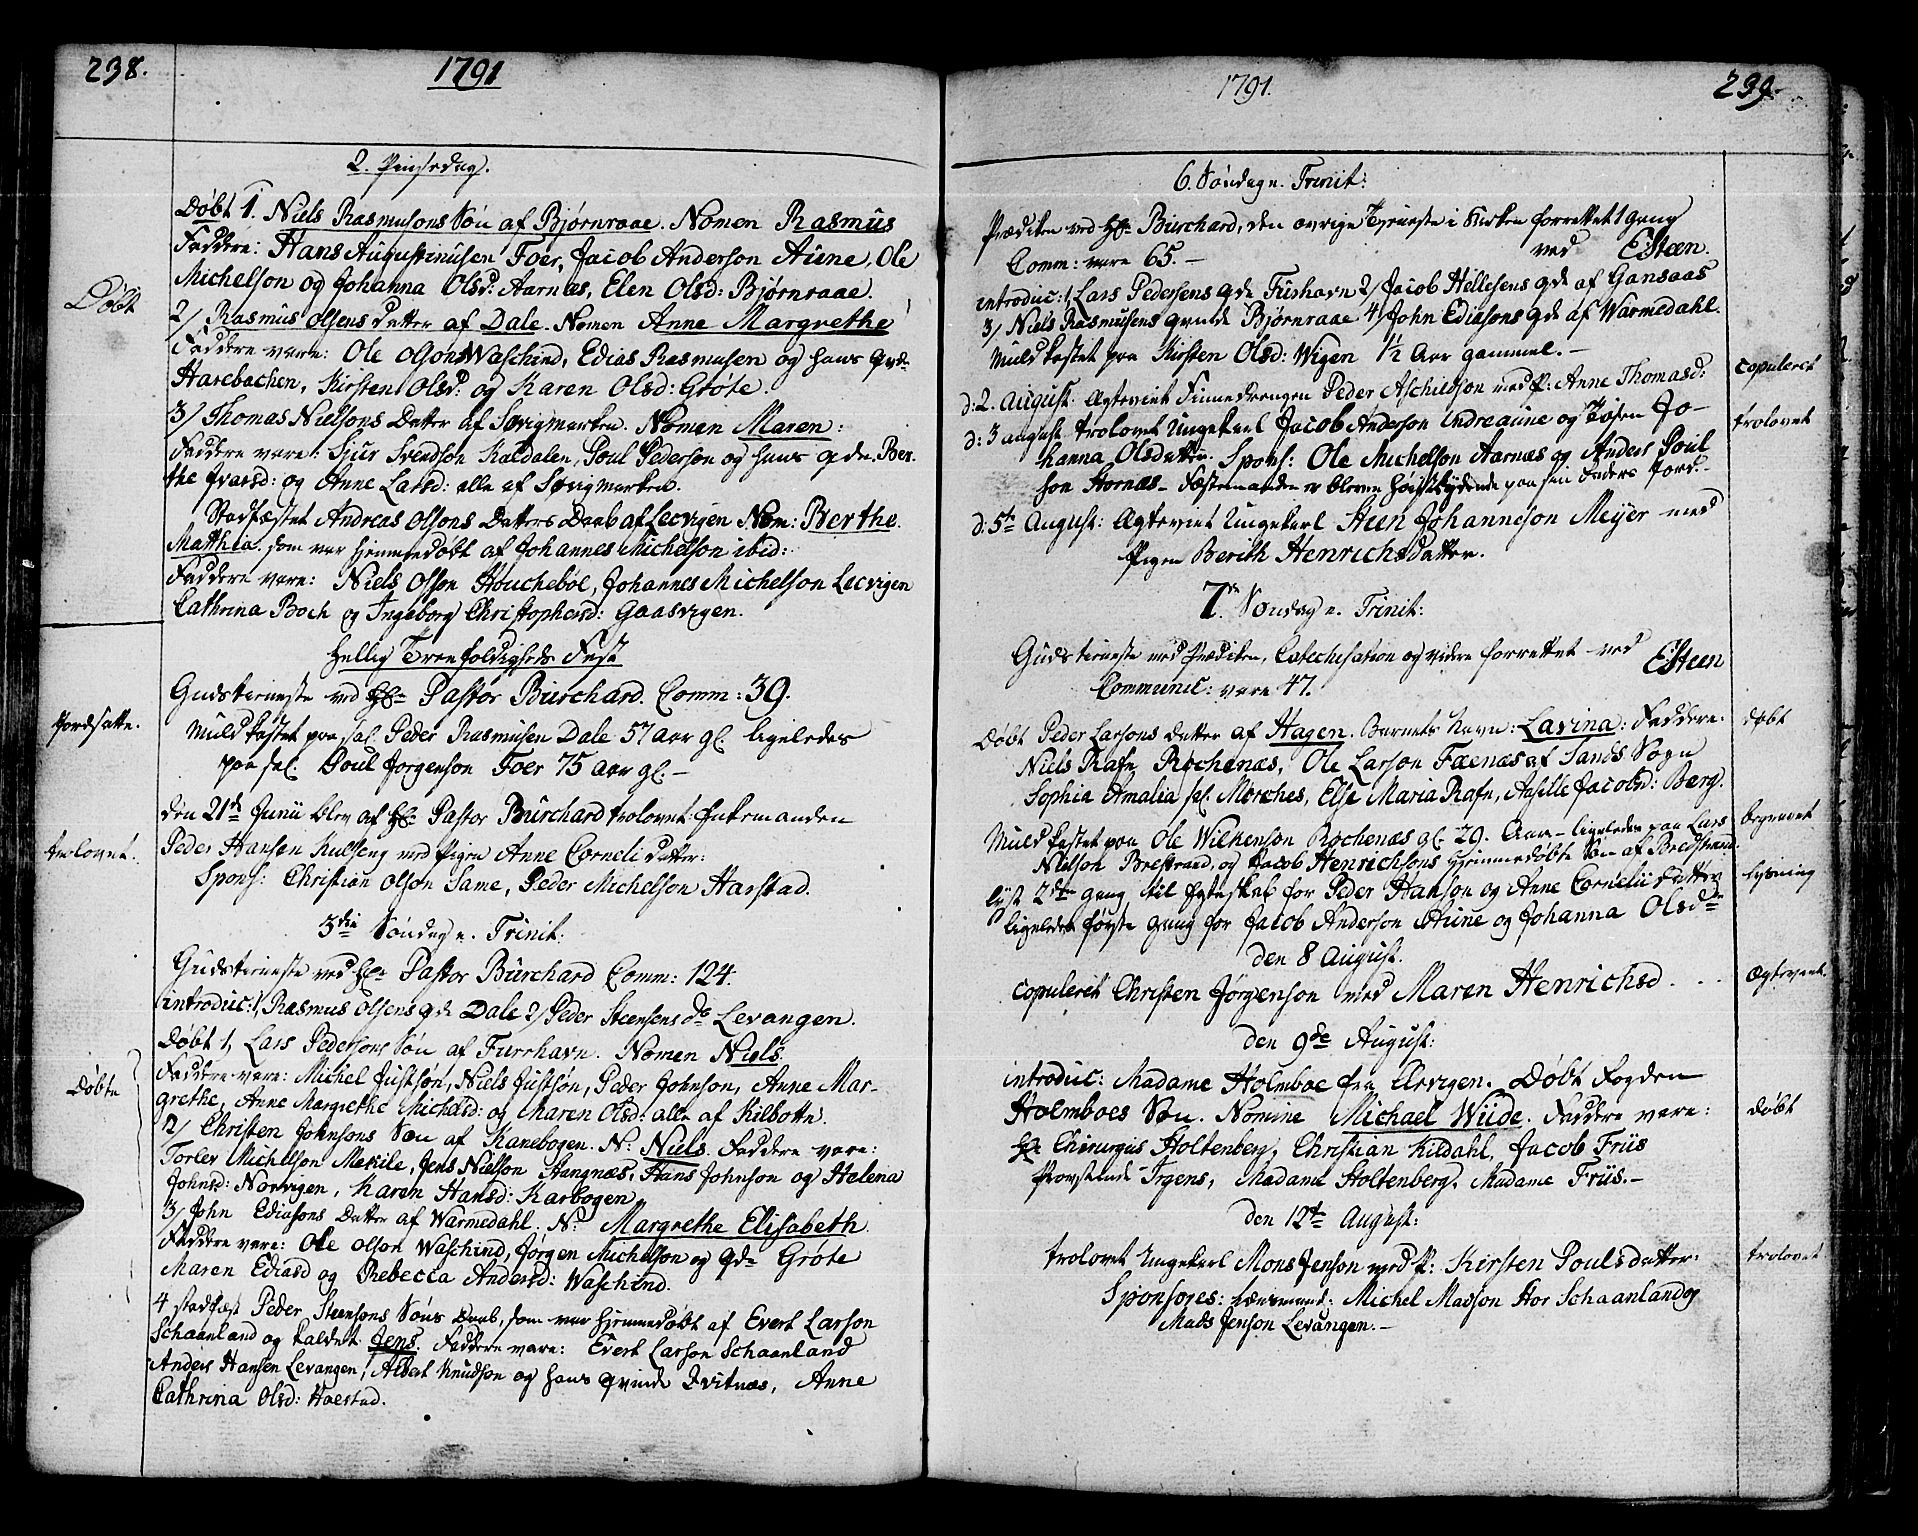 238.
1791
2. Pinsedag.
Døbt 1. Niels Rasmusons Søn af Bjørnraae. Nomen Rasmus
Faddere: Hans Augustinusen Foer, Jacob Anderson Aune, Ole
Michelson og Johanna Olsd: Aarnæs, Elen Olsd: Bjørnraae.
Døbt
2/ Rasmus Olsens Datter af Dale. Nomen Anne Margrethe
Faddere vare: Ole Olsons Waschind, Edias Rasmusen og hans qvde
Harebachen, Kirsten Olsd: og Karen Olsd: Grote.
3/ Thomas Nielsons Datter af Sørigmarken. Nomen Maren:
Faddere vare: Sjur Svendson Kaldalen, Poul Pederson og hans qvde. Ber
the Ivarsd: og Anne Larsd: alle af Sørigmarken.
Stadfæstet Andreas Olsons Datters Daab af Lecvigen Nom: Berthe
Matthia. som var hjemmedøbt af Johannes Michelson ibid:
Faddere vare: Niels Olsen Houchebøl, Johannes Michelson Lecvigen
Cathrina Boch og Ingeborg Christophersd: Gaasvigen.
Hellig Treefoldigheds Fest
Gudstieneste ved Hr. Pastor Burchard. Comm: 39.
Jordsatte.
Muld kastet paa sal. Peder Rasmusen Dale 57 aar gl. ligeledes
paa sal. Poul Jorgenson Foer 75 aar gl. –
den 21de Junii blev af Hr. Pastor Burchard trolovet Enkemanden
trolovet.
Peder Hansen Kulseng med Pigen Anne Corneli Datter:
Spons: Christian Olson Same, Peder Michelson Harstad.
3die Søndag e. Trinit:
Gudstieneste ved Hr. Pastor Burchard Comm: 124.
introduc: 1, Rasmus Olsens qvde Dale 2/ Peder Steensens do Levangen.
Døbt 1, Lars Pedersons Søn af Furrhavn. Nomen Niels.
Faddere vare: Michel Justsøn, Niels Justsøn, Peder Johnson, Anne Mar-
Døbte
grethe, Anne Margrethe Michelsd: og Maren Olsd: alle af Kilbotte.
2/ Christen Johnsons Søn af Kanebogen. N: Niels. Faddere vare:
Torlev Michelson Mekile, Jens Nielson Hangnæs, Hans Johnson og Helena
Johnsd: Norvigen, Karen Hansd: Karbogen
3/ John Ediasons Datter af Warmedahl. N: Margrethe Elisabeth
Faddere vare: Ole Olson Waschind, Jørgen Michelson og qvde Grote
Maren Ediasd og Rebecca Andersd: Waschind.
4 stadfæst Peder Steensons Søns Daab, som var hjemmedøbt af Evert Larson
Schaanland og kaldet Jens. Faddere vare: Evert Larson Schaanland
Anders Hansen Levangen, Albert Knudson og hans qvinde Qvitnæs, Anne
Cathrina Olsd: Haestad.
1791.
239.
6. Søndag e. Trinit:
Prædiken ved Hr. Burchard, den øvrige Tjeneste i Kirken forrettet 1 gang
Comm: vare 65. – ved ESteen.
introduc: 1, Lars Pedersens qvde Furhavn 2/ Jacob Hellesens qvde af Gansaas
3/ Niels Rasmusens qvinde Bjørnraae 4/ John Ediasons qvde af Warmedahl.
Muld kastet paa Kirsten Olsd: Wigen 1½ Aar gammel. –
copuleret
d: 2. August. Ægteviet Finnedrengen Peder Aschildson med P: Anne Thomasd:
d: 3 august trolovet Ungekarl Jacob Anderson Indreaune og Tøsen Jo-
trolovet
hanna Olsdatter. Spons: Ole Michelson Aarnæs og Anders Poul
son Hornæs – Fæstemanden er bleven huustlydende paa sin Faders Jord –
d: 5te August: Ægteviet Ungekarl Steen Johanneson Meyer med
Pigen Berith Henrichsdatter.
7de Søndag e. Trinit:
Gudstieneste med Prædiken, Catechisation og videre forrettet ved
ESteen
Communic: vare 47.
Døbt Peder Larsons Datter af Hagen. Barnets Navn: Lavina: Faddere:
døbt
Niels Rafn Rochenæs, Ole Larson Faenæs af Sands Sogn
Sophia Amalia sal. Morches, Else Maria Rafn, Assille Jacobsd: Berg.
Muld kastet paa Ole Wilkenson Rochenæs gl. 29. Aar – ligeledes paa Lars
begravet
Nielson Brestrand, og Jacob Henrichsons hjemmedøbte Søn af Bredstrand
lyst 2den gang til Ægteskab for Peder Hanson og Anne Cornelii Datter
lysning
ligeledes første gang for Jacob Anderson Aune og Johanna Olsdr
den 8 August.
copuleret Christen Jørgenson med Maren Henrichsd . . .
Ægteviet.
den 9de August:
introduc: Madame Holmboe fra Elevigen. Døbt Fogden
Holmboes Søn. Nomine Michael Wiide. Faddere vare:
døbt
Hr Chirurgus Stoltenberg, Christian Kildahl, Jacob Friis
Provstinde Irgens, Madame Stoltenberg, Madame Friis. –
den 12te August:
trolovet Ungekarl Mons Jenson med P: Kirsten Poulsdatter:
trolovet
Sponsores: Lensmand: Michel Madson Hor Schaanland og
Mads Jenson Levangen. –